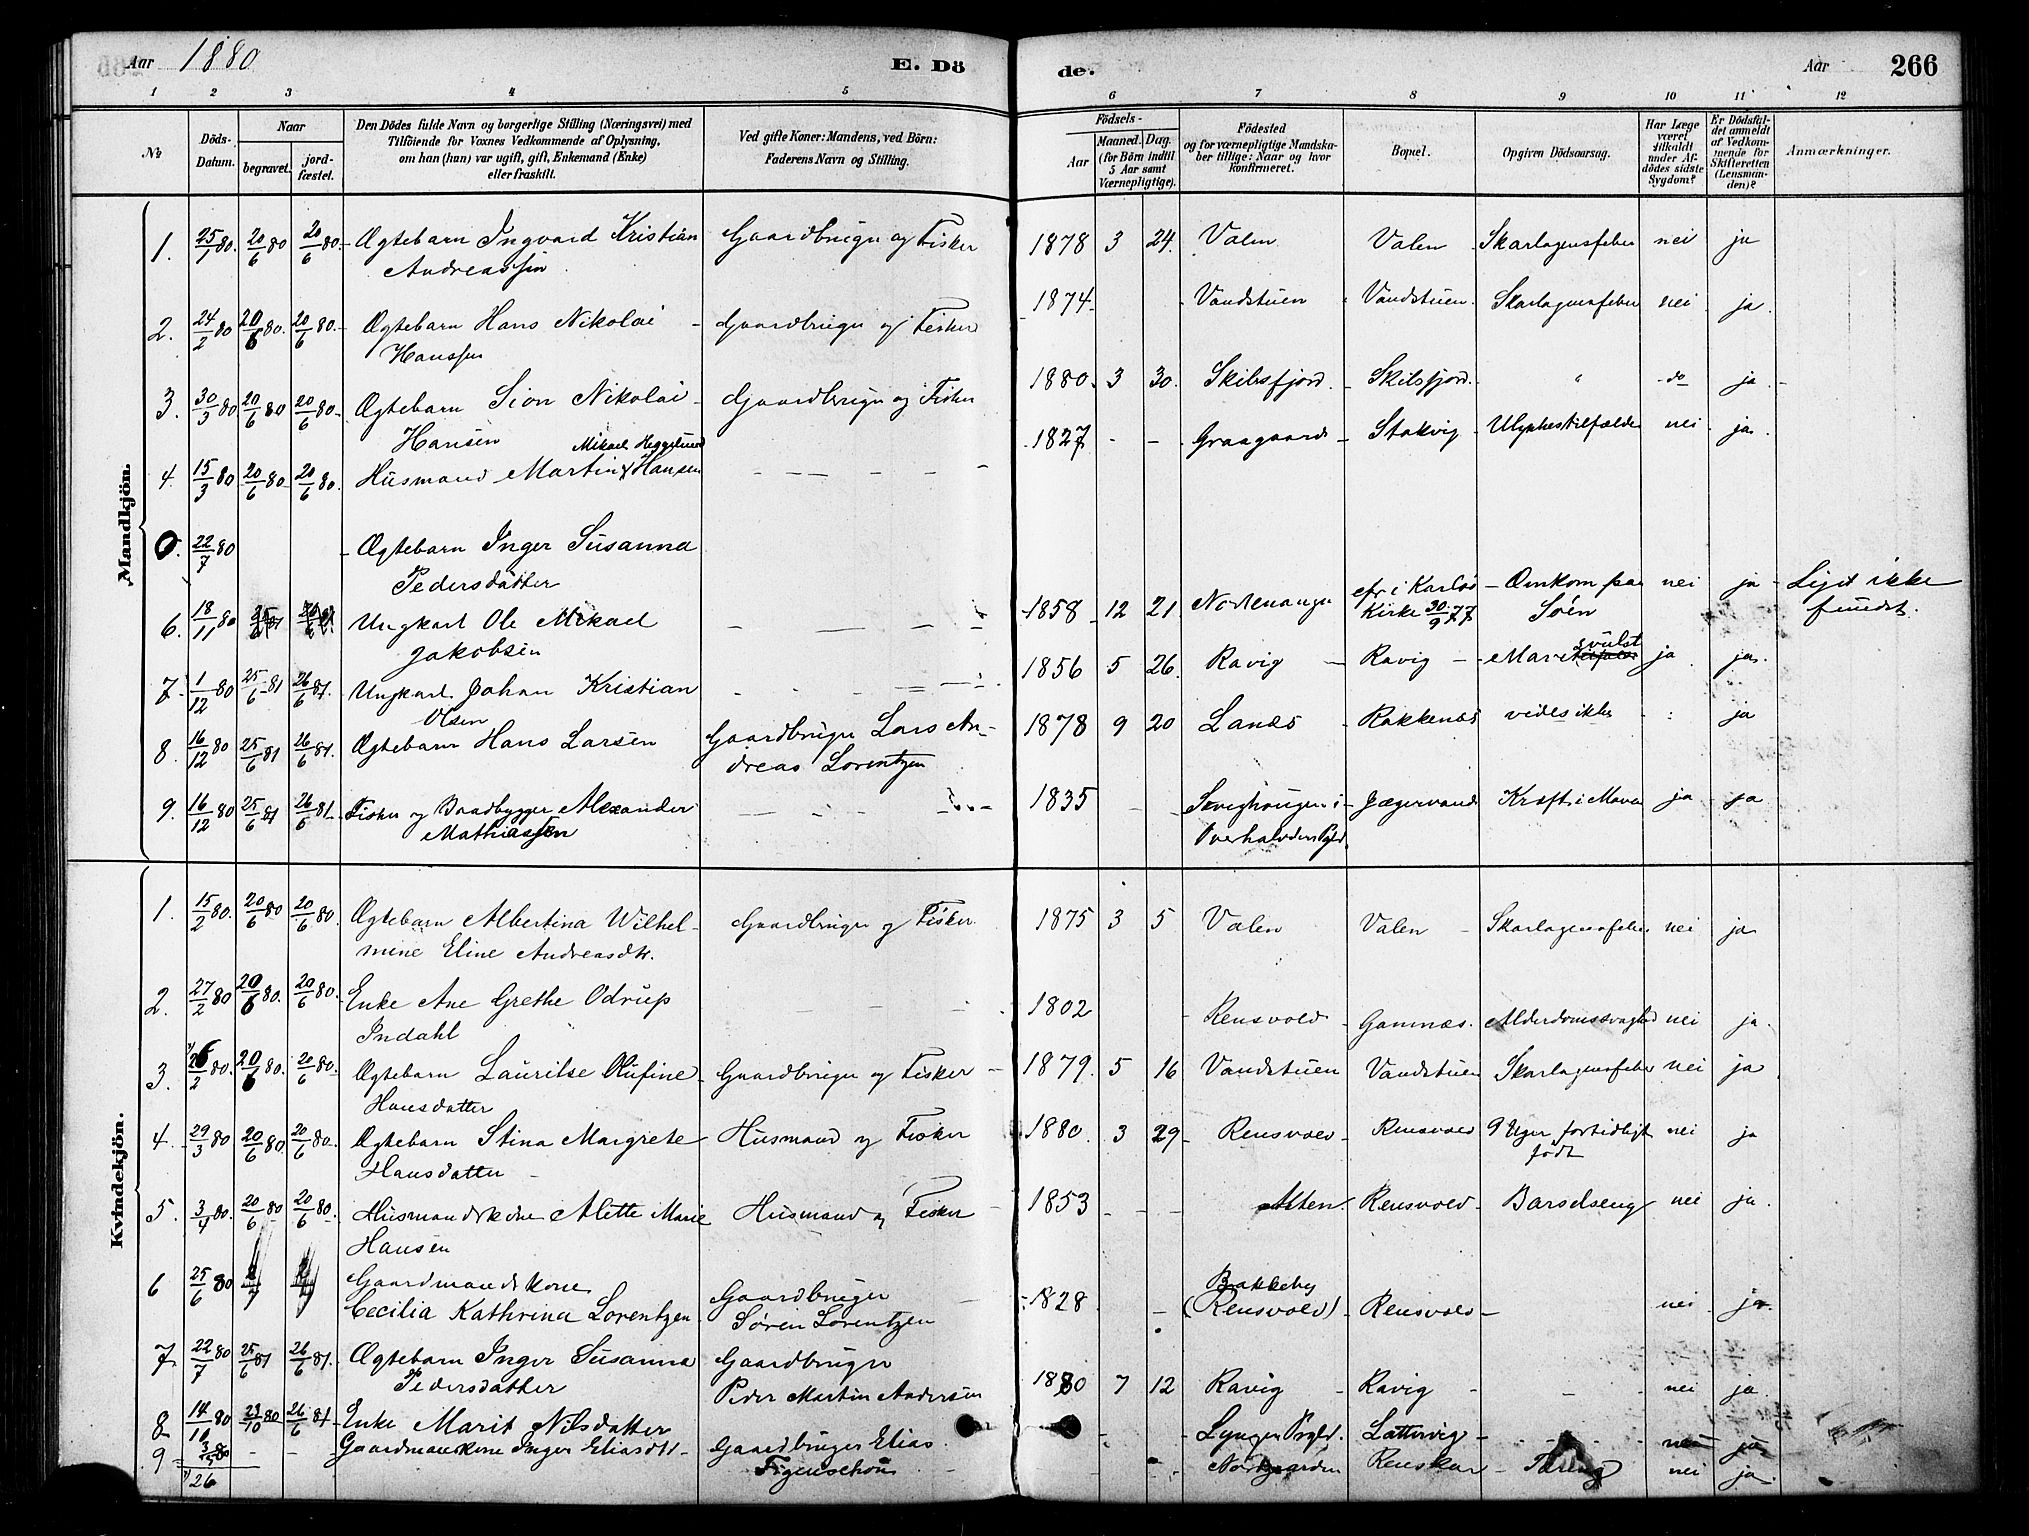 Aar 1880 E. Dö de. Aar 266
1 2 3 4 5 6 7 8 9 10 11 12
№ Döds-Datum. Naar begravet. jord-fæstet.
Den Dödes fulde Navn og borgerlige Stilling (Næringsvei) med
Tilföiende for Voxnes Vedkommende af Oplysning,
om han (hun) var ugift, gift, Enkemand (Enke)
eller fraskilt.
Ved gifte Koner: Mandens, ved Börn:
Faderens Navn og Stilling.
Födsels-
Aar Maaned. (for Börn indtil 5 Aar samt Værnepligtige). Dag.
Födested
og for værnepligtige Mandska-
ber tillige: Naar og hvor
konfirmeret.
Bopæl.
Opgiven Dödsaarsag.
Har Læge været tilkaldt under Af-dödes sidste Sygdom?
Er Dödsfal-det anmeldt af Vedkom-mende for Skifteretten (Lensman-den)?
Anmærkninger.
Mandkjön.
1. 25/1 80. 20/6 80 20/6 80. Ægtebarn Ingvard Kristian Gaardbruger og Fisker 1878 3 24. Valen Valen Skarlagensfeber nei ja
Andreassen
2. 24/2 80 20/6 80. 20/6 80. Ægtebarn Hans Nikolai Gaardbruger og Fisker 1874 Vandstuen Vandstuen Skarlagensfeber nei ja.
Hanssen
3. 30/3 80 20/6 80 20/6 80. Ægtebarn Sion Nikolai Gaardbruger og Fisker 1880. 3 30. Skibsfjord. Skibsfjord. " do ja.
Hansen Mikael Heggelund
4. 15/3 80 20/6 80 20/6 80. Husmand Martin Hansen 1827 - - Graagaard Stakvig Ulykkestilfælde nei ja
0. 22/7 80 Ægtebarn Inger Susanna
Pedersdatter
6. 18/11 80 Ungkarl Ole Mikael 1858 12 21. efr i Karlsö Kirke 30/9 77 Omkom paa Søen nei ja Liget ikke fundet.
Jakobsen
7. 1/12 80 25/6 81 26/6 81. Ungkarl Johan Kristian 1856 5 26. Ravig Ravig svulst ja ja.
Olsen
8. 16/12 80 25/6 81 26/6 81. Ægtebarn Hans Larsen Gaardbruger Lars An- 1878 9 20 Lanæs Bakkenæs vides ikke ja
dreas Lorentzen
9. 16/12 80 25/6 81 26/6 81 Fisker og Baadbygger Alexander 1835 Jægervand Kræft i Maven ja ja
Mathiassen
Kvindekjön.
1. 15/2 80. 20/6 80 20/6 80. Ægtebarn Albertina Wilhel- Gaardbruger og Fisker 1875 3 5 Valen Valen Skarlagensfeber nei ja
mine Eline Andreasdtr.
2. 27/2 80 20/6 80. 20/6 80. Enke Ane Grethe Odrup 1802 Rensvold Gamnæs. Alderdomssvaghed nei ja.
Indahl
3. 26/2 80. 20/6 80. 20/6 80. Ægtebarn Lauritse Rufine Gaardbruger og Fisker 1879. 5 16 Vandstuen Vandstuen Skarlagensfeber nei ja
Hansdatter
4. 29/3 80 20/6 80 20/6 80. Ægtebarn Stina Margrete Husmand og Fisker 1880. 3 29 Rensvold Rensvold 9 Uger fortidligt født nei ja
Hansdatter
5. 3/4 80. 20/6 80 20/6 80. Husmandskone Alette Marie Husmand og Fisker 1853 Alten. Rensvold Barselseng nei ja.
Hansen
6 25/6 80 Gaardmandskone Gaardbruger Bakkeby
Cecilia Kathrina Lorentzen Søren Lorentzen 1828 (Rensvold) Rensvold nei ja.
7. 22/7 80 25/6 81 26/6 81. Ægtebarn Inger Susanna Gaardbruger
Pedersdatter Peder Martin Andersen 1880 7 12 Ravig Ravig nei ja
8 14/10 80 23/10 80 26/6 81 Enke Marit Nilsdatter Lyngen Prgld. Lattervig nei ja
9 3/5 80 - - Gaardmandskone Inger Eliasdtr Gaardbruger Elias Nordgaarden Renskar Tæring nei ja
26 Figenschou